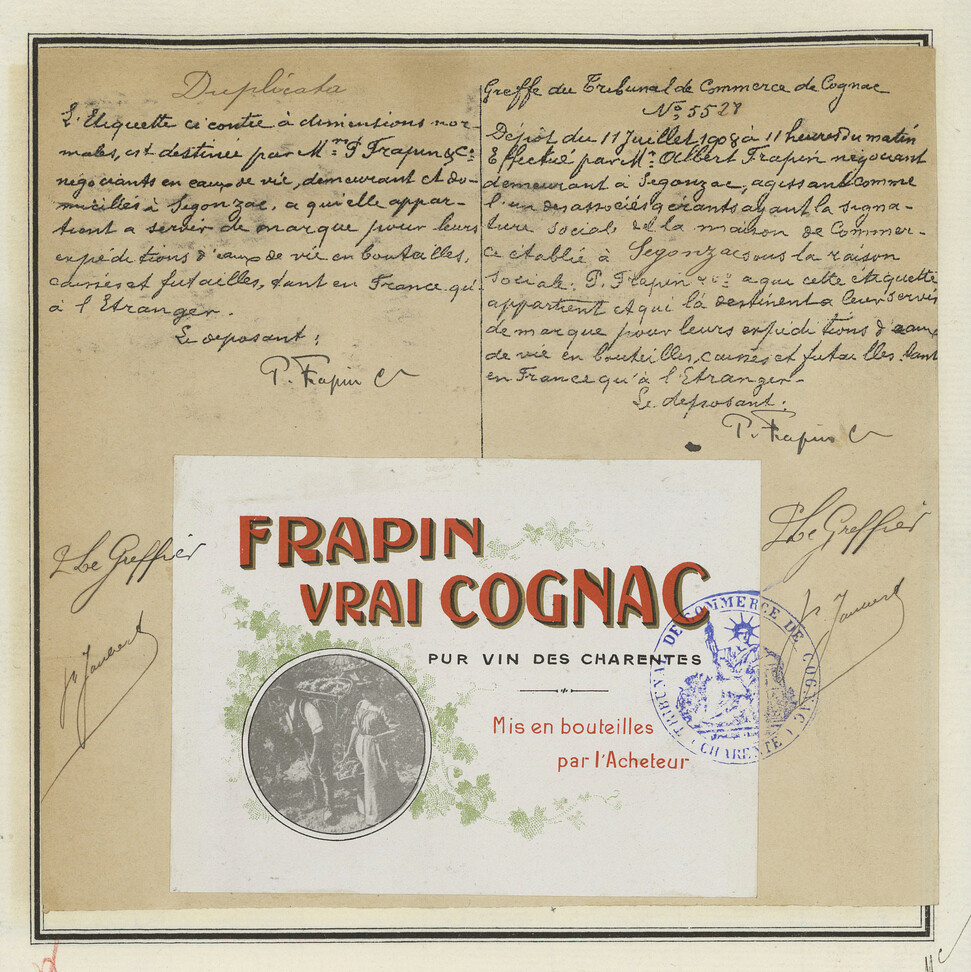 Duplicata
L'Etiquette ci contre à dimensions nor-
males, est destinée par Mrs P. Frapin & Cie
négociants en eaux de vie, demeurant et do-
miciliés à Segonzac, a qu'elle appar-
tient a servir de marque pour leurs
expéditions d'eaux de vie en bouteilles,
caisses et futailles, tant en France qu'
à l'Etranger.
Le deposant :
P. Frapin Cie
Greffe du Tribunal de Commerce de Cognac
No 5528
Dépot du 11 Juillet 1908 à 11 heures du matin
Effectué par Mr Albert Frapin négociant
demeurant à Segonzac, agissant comme
l'un des associés gérants ayant la signa-
ture sociale de la maison de Commer-
ce établie à Segonzac sous la raison
sociale. P. Frapin & Cie a qui cette étiquette
appartient et qui la destinent a leur servir
de marque pour leurs expéditions d'eaux
de vie en bouteilles, caisses et futailles tant
en France qu'à l'Etranger-
Le deposant.
P. Frapin Cie
Le Greffier
Le Greffier
Jaubert
Jaubert
FRAPIN
VRAI COGNAC
PUR VIN DES CHARENTES
Mis en bouteilles
par l'Acheteur
TRIBUNAL DE COMMERCE DE COGNAC
CHARENTE